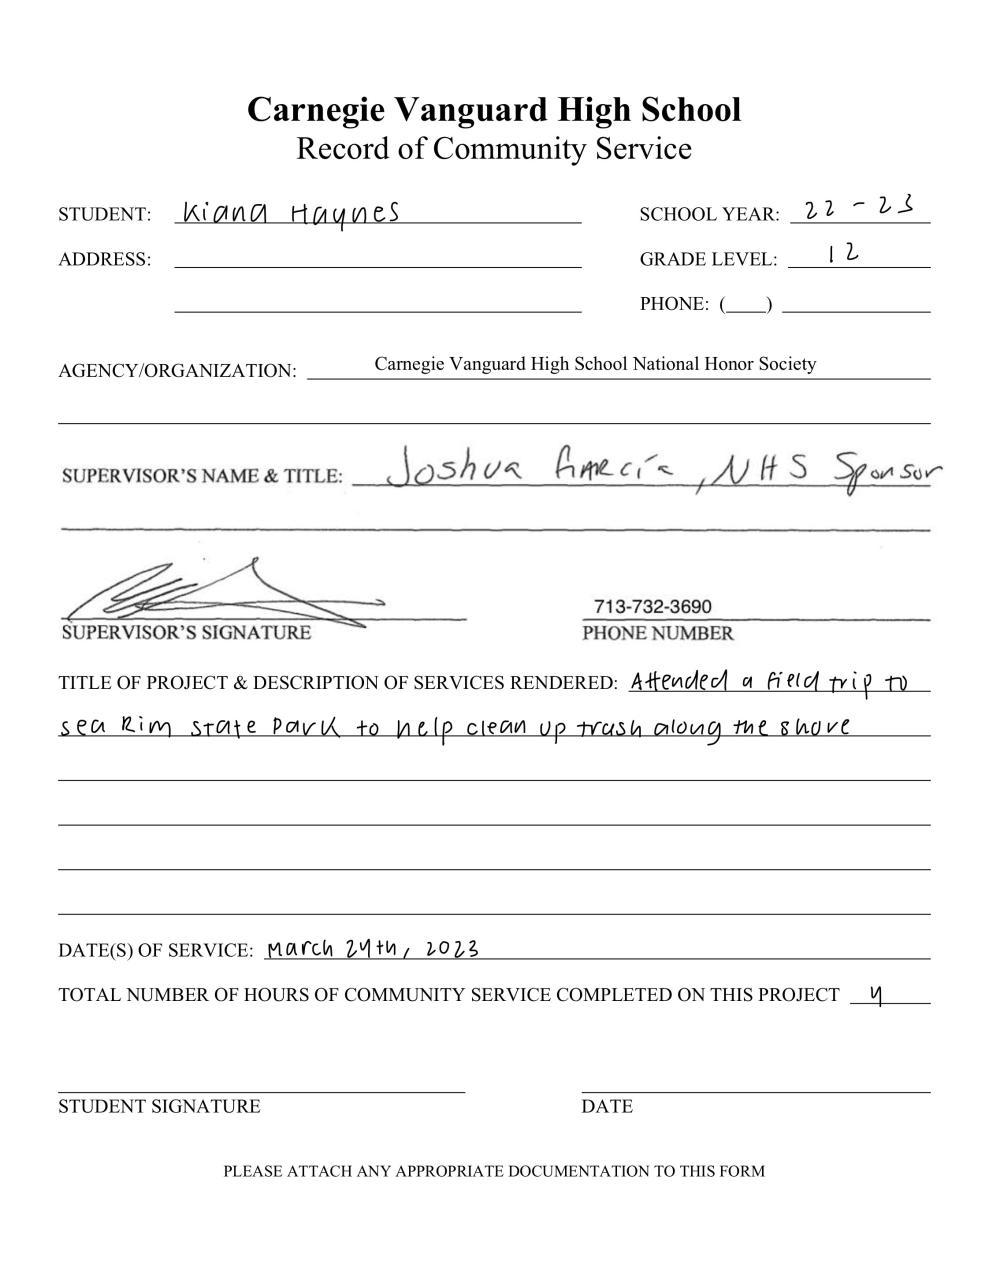 Carnegie Vanguard High School
Record of Community Service
STUDENT: Kiana Haynes SCHOOL YEAR: 22 - 23
ADDRESS: GRADE LEVEL: 12
PHONE: (____)
AGENCY/ORGANIZATION: Carnegie Vanguard High School National Honor Society
SUPERVISOR'S NAME & TITLE: Joshua García, NHS Sponsor
713-732-3690
SUPERVISOR'S SIGNATURE PHONE NUMBER
TITLE OF PROJECT & DESCRIPTION OF SERVICES RENDERED: Attended a field trip to
sea Rim State Park to help clean up trash along the shore
DATE(S) OF SERVICE: March 24th, 2023
TOTAL NUMBER OF HOURS OF COMMUNITY SERVICE COMPLETED ON THIS PROJECT 4
STUDENT SIGNATURE DATE
PLEASE ATTACH ANY APPROPRIATE DOCUMENTATION TO THIS FORM